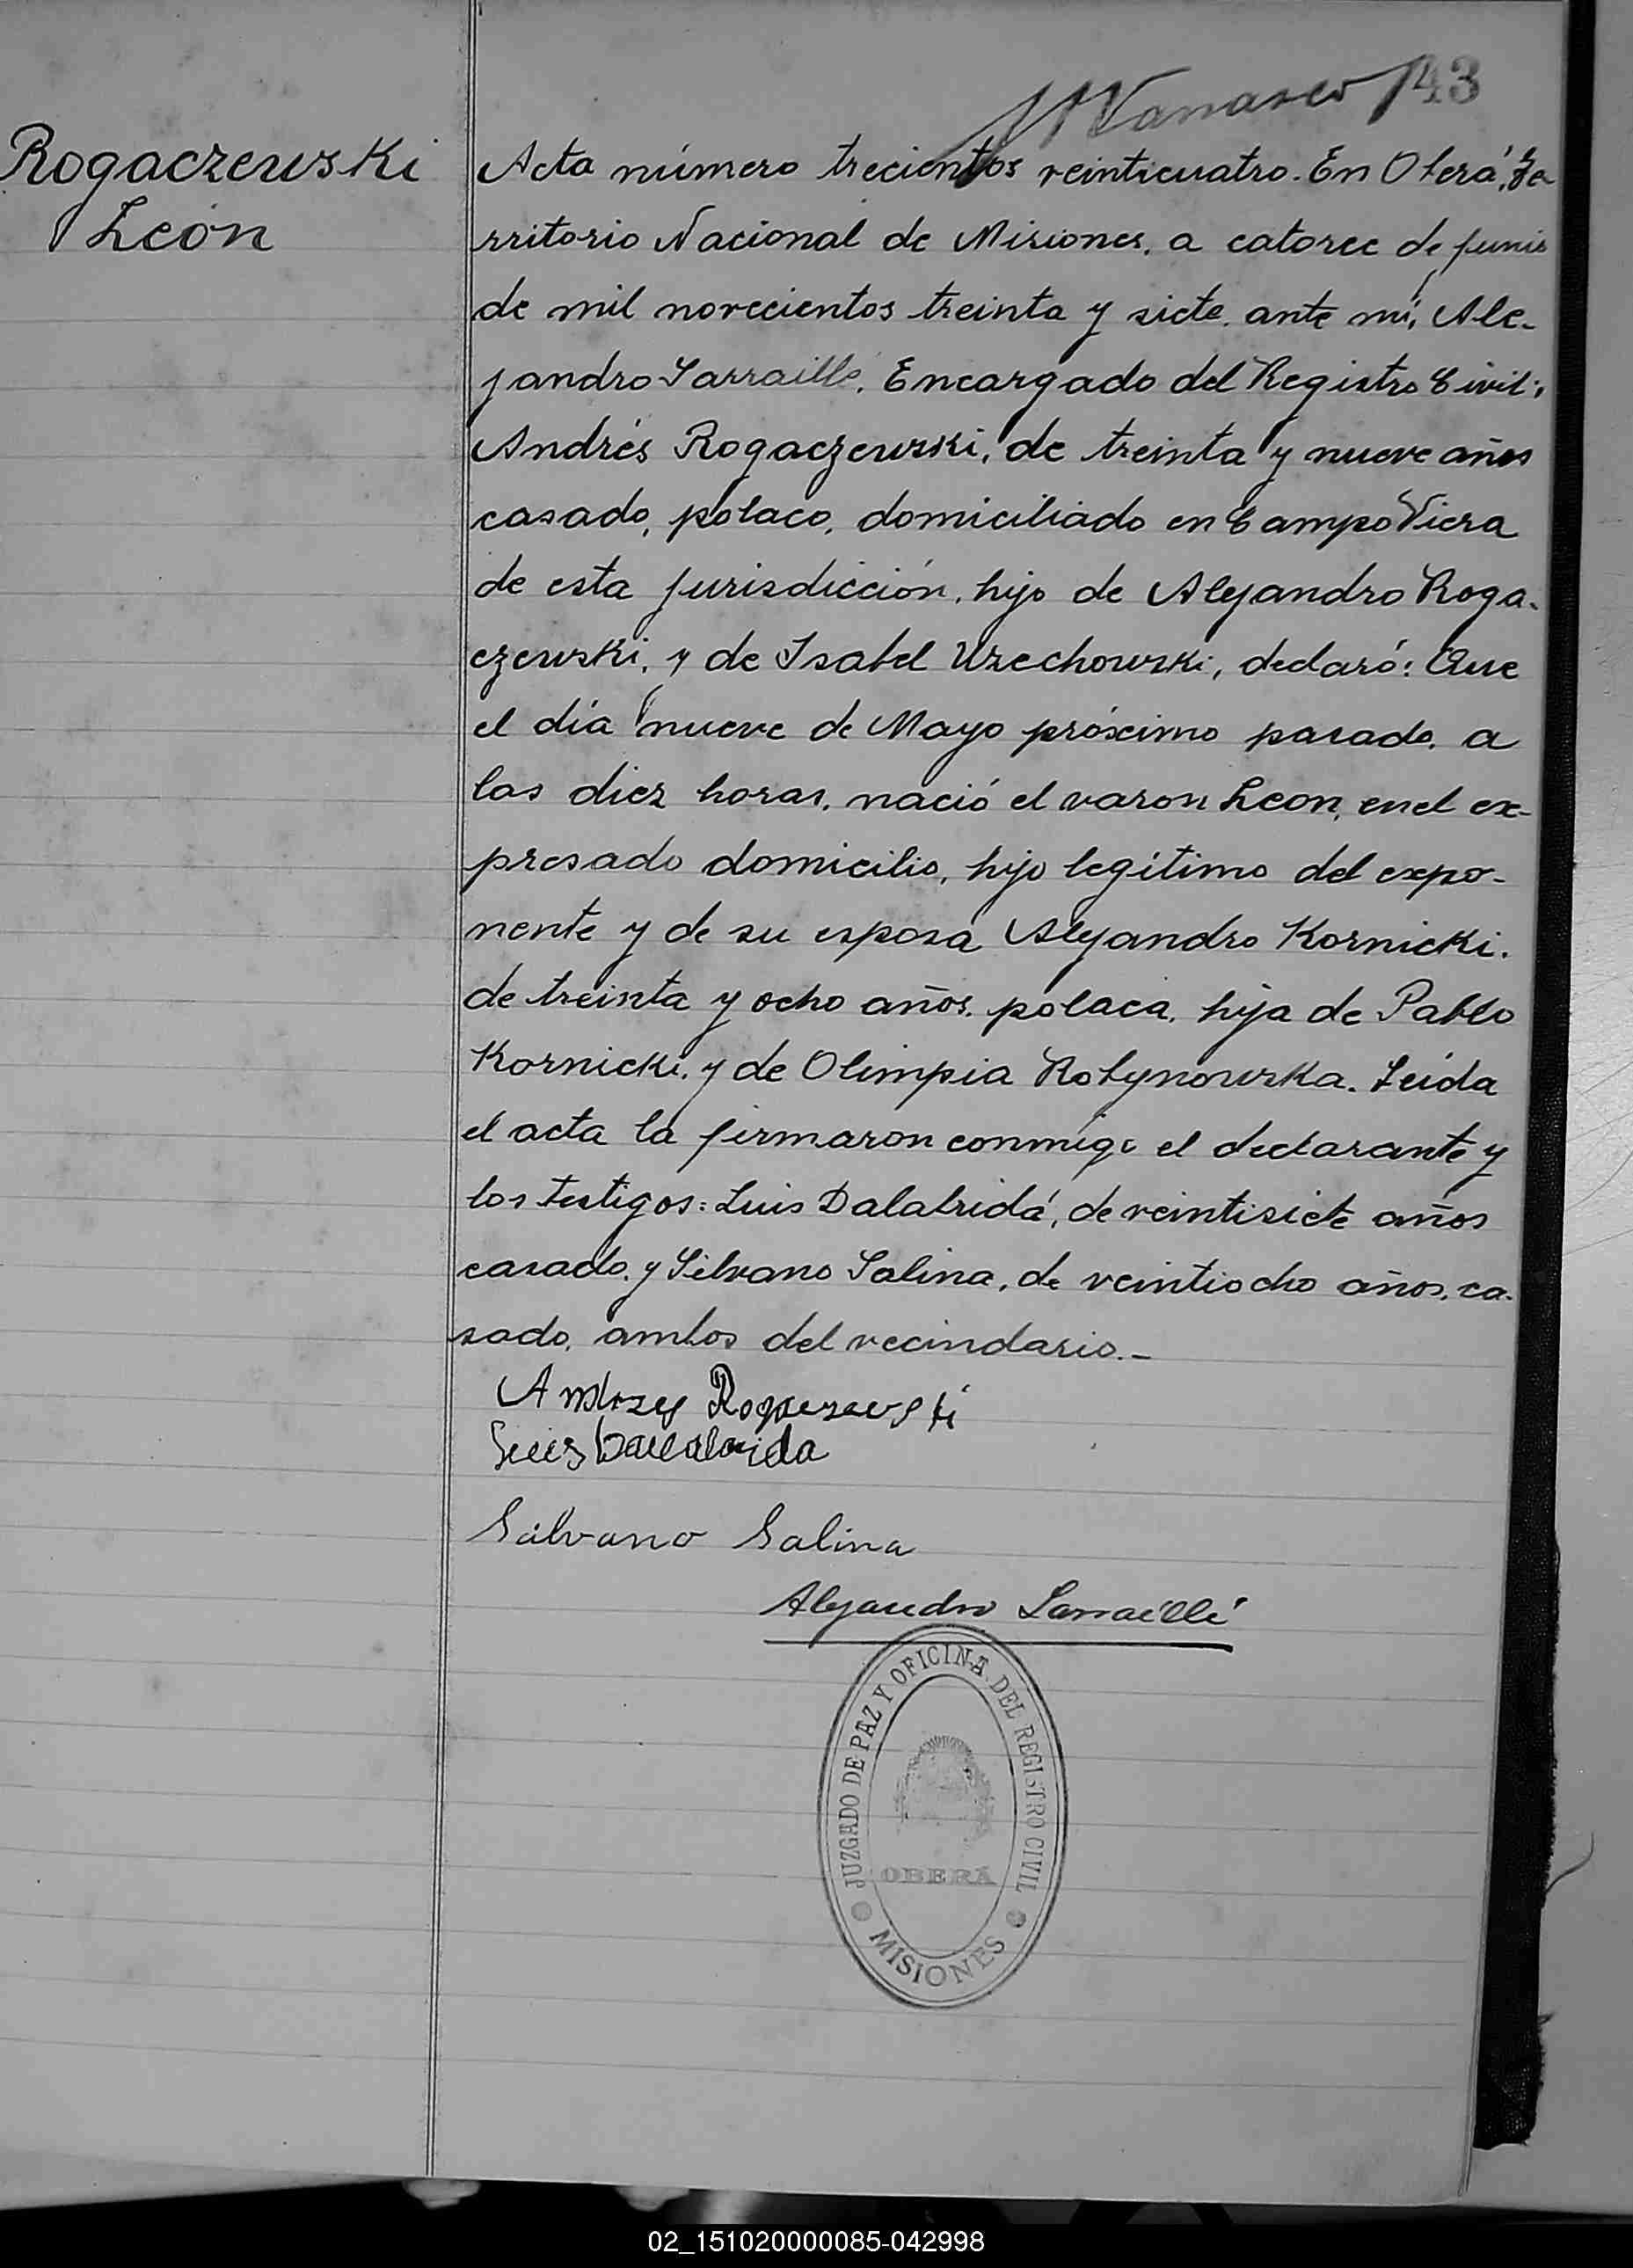 143
Rogaczewski
León
Acta número trecientos veinticuatro. En Oberá, Te-
rritorio Nacional de Misiones, a catorce de junio
de mil novecientos treinta y siete, ante mí, Ale-
jandro Sarraillé, Encargado del Registro Civil;
Andrés Rogaczewski, de treinta y nueve años
casado, polaco, domiciliado en Campo Viera
de esta jurisdicción, hijo de Alejandro Roga-
czewski, y de Isabel Urechowski, declaró: Que
el día nueve de Mayo próximo pasado, a
las diez horas, nació el varon Leon, en el ex-
presado domicilio, hijo legítimo del expo-
nente y de su esposa Alejandro Kornicki,
de treinta y ocho años, polaca, hija de Pablo
Kornicki, y de Olimpia Robynowska. Leída
el acta la firmaron conmigo el declarante y
los testigos: Luis Dalabridá, de veintisiete años
casado, y Silvano Salina, de veintiocho años, ca-
sado, ambos del vecindario.-
Andrzej Rogaczewski
Luis Dallabrida
Silvano Salina
Alejandro Sarraillé
JUZGADO DE PAZ Y OFICINA DEL REGISTRO CIVIL
OBERÁ
MISIONES
02_151020000085-042998